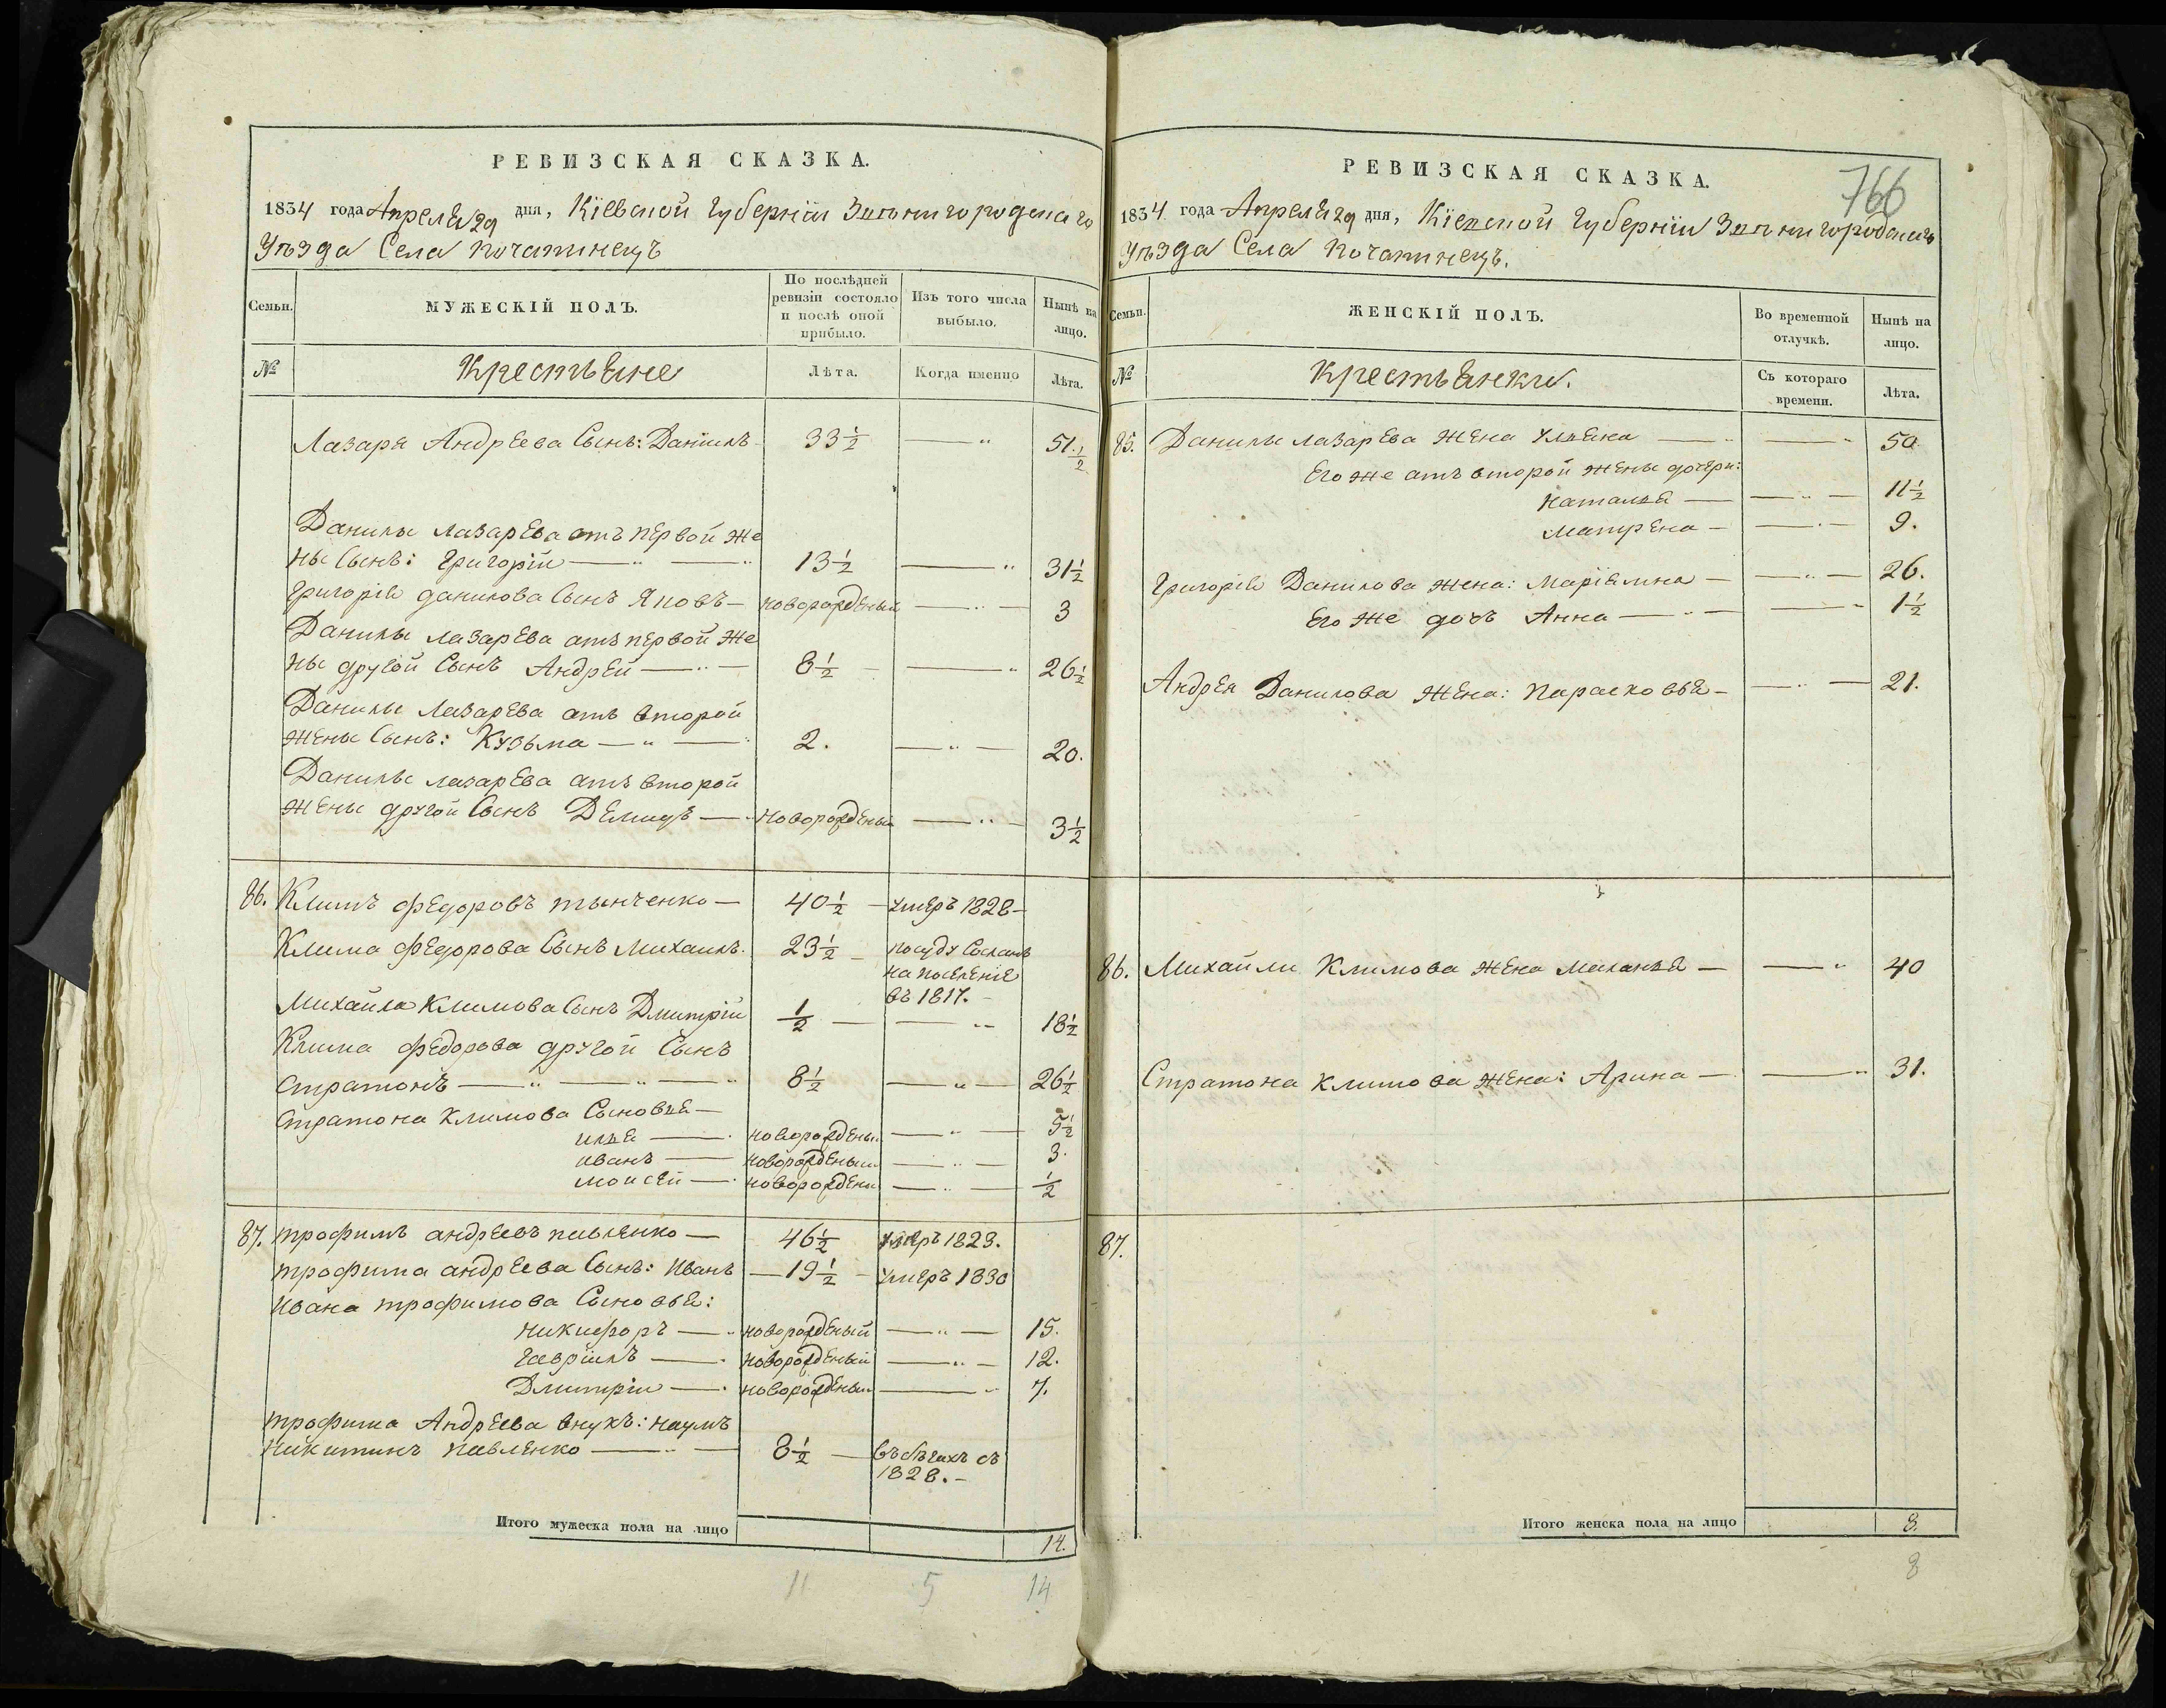 РЕВИЗСКАЯ СКАЗКА.
1834 года Апреля 29 дня, Кіевской Губерніи Звѣнигородскаго
Уѣзда Села Почапинецъ
Семьи.
МУЖЕСКІЙ ПОЛЪ.
По послѣдней ревизіи состояло и послѣ оной прибыло.
Изъ того числа выбыло.
Нынѣ на лицо.
№
Крестьяне
Лѣта.
Когда именно
Лѣта.
Лазаря Андреева Сынъ: Даніилъ 33 1/2 — " 51. 1/2
Данилы Лазарева отъ первой же
ны Сынъ: Григорій — " — " 13 1/2 — " 31 1/2
Григорія Данилова Сынъ Яковъ — новорожденый — " — 3
Данилы Лазарева отъ первой же
ны другой Сынъ Андрей — " — 8 1/2 — — " 26 1/2
Данилы Лазарева отъ второй
жены Сынъ: Кузьма — " — " 2. — " — 20.
Данилы Лазарева отъ второй
жены другой Сынъ Демидъ — новорожденый — " — 3 1/2
86. Климъ Федоровъ Тынченко — 40 1/2 — умеръ 1828 —
Клима Федорова Сынъ Михаилъ. 23 1/2 — посуду Сосланъ
на поселеніе
въ 1817. —
Михайла Климова Сынъ Дмитрій 1/2 — — " 18 1/2
Клима Федорова другой Сынъ
Стратонъ — " — " — " 8 1/2 — " — 26 1/2
Стратона Климова Сыновья —
Илья — . новорожденый — " — 5 1/2
Иванъ — новорожденый — " — 3.
Моисей — . новорожденый — " — 1/2
87. Трофимъ Андреевъ Павленко — 46 1/2 умеръ 1829.
Трофима Андреева Сынъ: Иванъ — 19 1/2 — умеръ 1830
Ивана Трофимова Сыновья:
Никифоръ — " новорожденый — " — 15.
Гавріилъ — . новорожденый — " — 12.
Дмитрій — . новорожденый — " 7.
Трофима Андреева внукъ: Наумъ
Никитинъ Павленко — " — 8 1/2 — въ бѣгахъ съ
1828. —
Итого мужеска пола на лицо 14.
11 5 14
766
РЕВИЗСКАЯ СКАЗКА.
1834 года Апреля 29 дня, Кіевской Губерніи Звѣнигородскаго
Уѣзда Села Почапинецъ.
Семьи.
ЖЕНСКІЙ ПОЛЪ.
Во временной отлучкѣ.
Нынѣ на лицо.
№
Крестьянки.
Съ котораго времени.
Лѣта.
85. Данилы Лазарева жена Ульяна — " — " 50.
Его же отъ второй жены дочери:
Наталья — — " — 11 1/2
Матрена — — " — 9.
Григорія Данилова жена: Маріямна — — " — 26.
Его же дочъ Анна — " — — " 1 1/2
Андрея Данилова жена: Парасковья — — " — 21.
86. Михайли Климова жена Маланья — — " 40
Стратона Климова жена: Арина — — " 31.
87.
Итого женска пола на лицо 8.
8